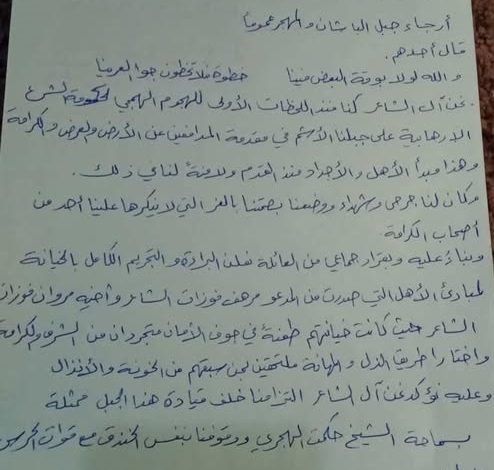 أرجاء جبل الباشان والمهجر عموماً
قال أحدهم.
والله لولا بوقة البعض فينا خطوة فلا تخطون جوا العرينا
نحن آل الشاعر كنا منذ اللحظات الأولى للهجوم الهمجي لحكومة الشرع
الإرهابية على جبلنا الأشم في مقدمة المدافعين عن الأرض والعرض والكرامة
وهذا مبدأ الأهل والأجداد منذ القدم ولا منة لنا في ذلك.
وكان لنا جرحى وشهداء ووضعنا بصمتنا بالعز التي لا ينكرها علينا أحد من
أصحاب الكرامة
وبناءً عليه وبقرار جماعي من العائلة نعلن البراءة والتجريم الكامل بالخيانة
لمبادئ الأهل التي صدرت من المدعو مرهف فوزات الشاعر وأخيه مروان فوزات
الشاعر حيث كانت خيانتهم طعنة في جوف الأمان متجردان من الشرف والكرامة
واختارا طريق الذل والمهانة ملتحقين لمن سبقهم من الخونة والأنذال
وعليه نؤكد نحن آل الشاعر التزامنا خلف قيادة هذا الجبل ممثلة
بسماحة الشيخ حكمت الهجري ووقوفنا بنفس الخندق مع قوات الحرس